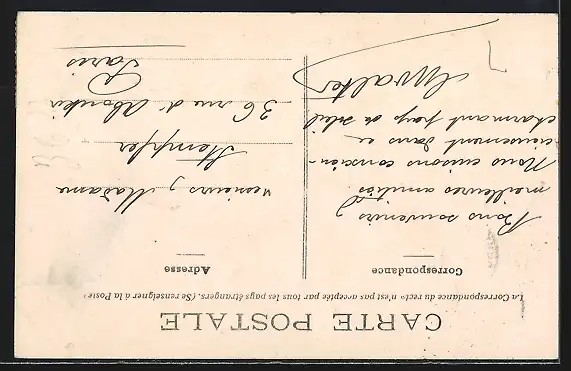 CARTE POSTALE
La Correspondance du recto n'est pas acceptée par tous les pays étrangers. (Se renseigner à la Poste)
Correspondance
Bons souvenirs &
meilleures amitiés
Nous cuisons conscien-
cieusement dans ce
charmant pays du soleil
Adresse
Messieurs & Madame
Stempfer
36 rue d'Aboukir
Paris